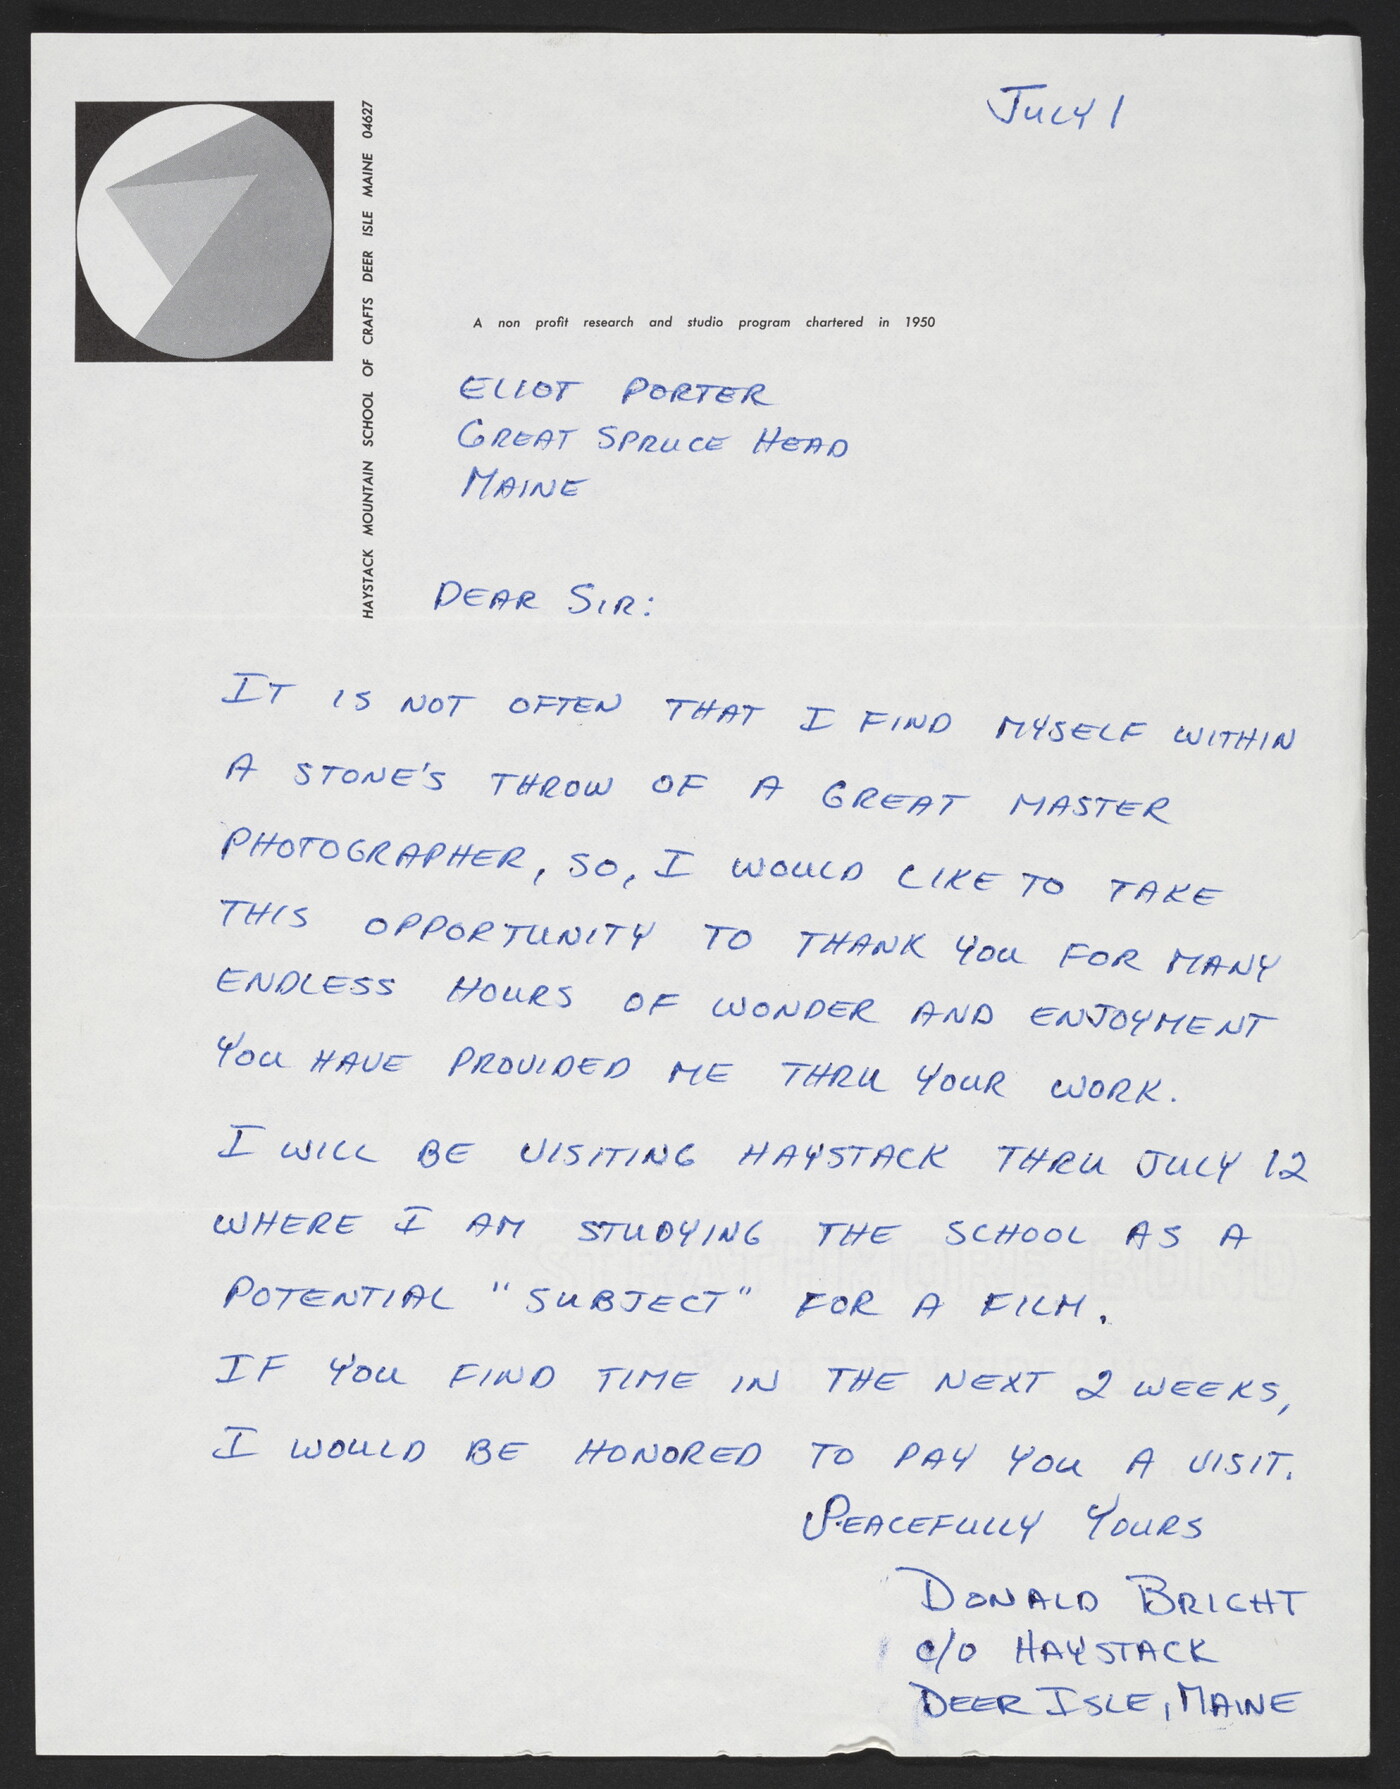 JULY 1
HAYSTACK MOUNTAIN SCHOOL OF CRAFTS DEER ISLE MAINE 04627
A non profit research and studio program chartered in 1950
ELIOT PORTER
GREAT SPRUCE HEAD
MAINE
DEAR SIR:
IT IS NOT OFTEN THAT I FIND MYSELF WITHIN
A STONE'S THROW OF A GREAT MASTER
PHOTOGRAPHER, SO, I WOULD LIKE TO TAKE
THIS OPPORTUNITY TO THANK YOU FOR MANY
ENDLESS HOURS OF WONDER AND ENJOYMENT
YOU HAVE PROVIDED ME THRU YOUR WORK.
I WILL BE VISITING HAYSTACK THRU JULY 12
WHERE I AM STUDYING THE SCHOOL AS A
POTENTIAL "SUBJECT" FOR A FILM.
IF YOU FIND TIME IN THE NEXT 2 WEEKS,
I WOULD BE HONORED TO PAY YOU A VISIT.
PEACEFULLY YOURS
DONALD BRIGHT
C/O HAYSTACK
DEER ISLE, MAINE
STRATHMORE BOND